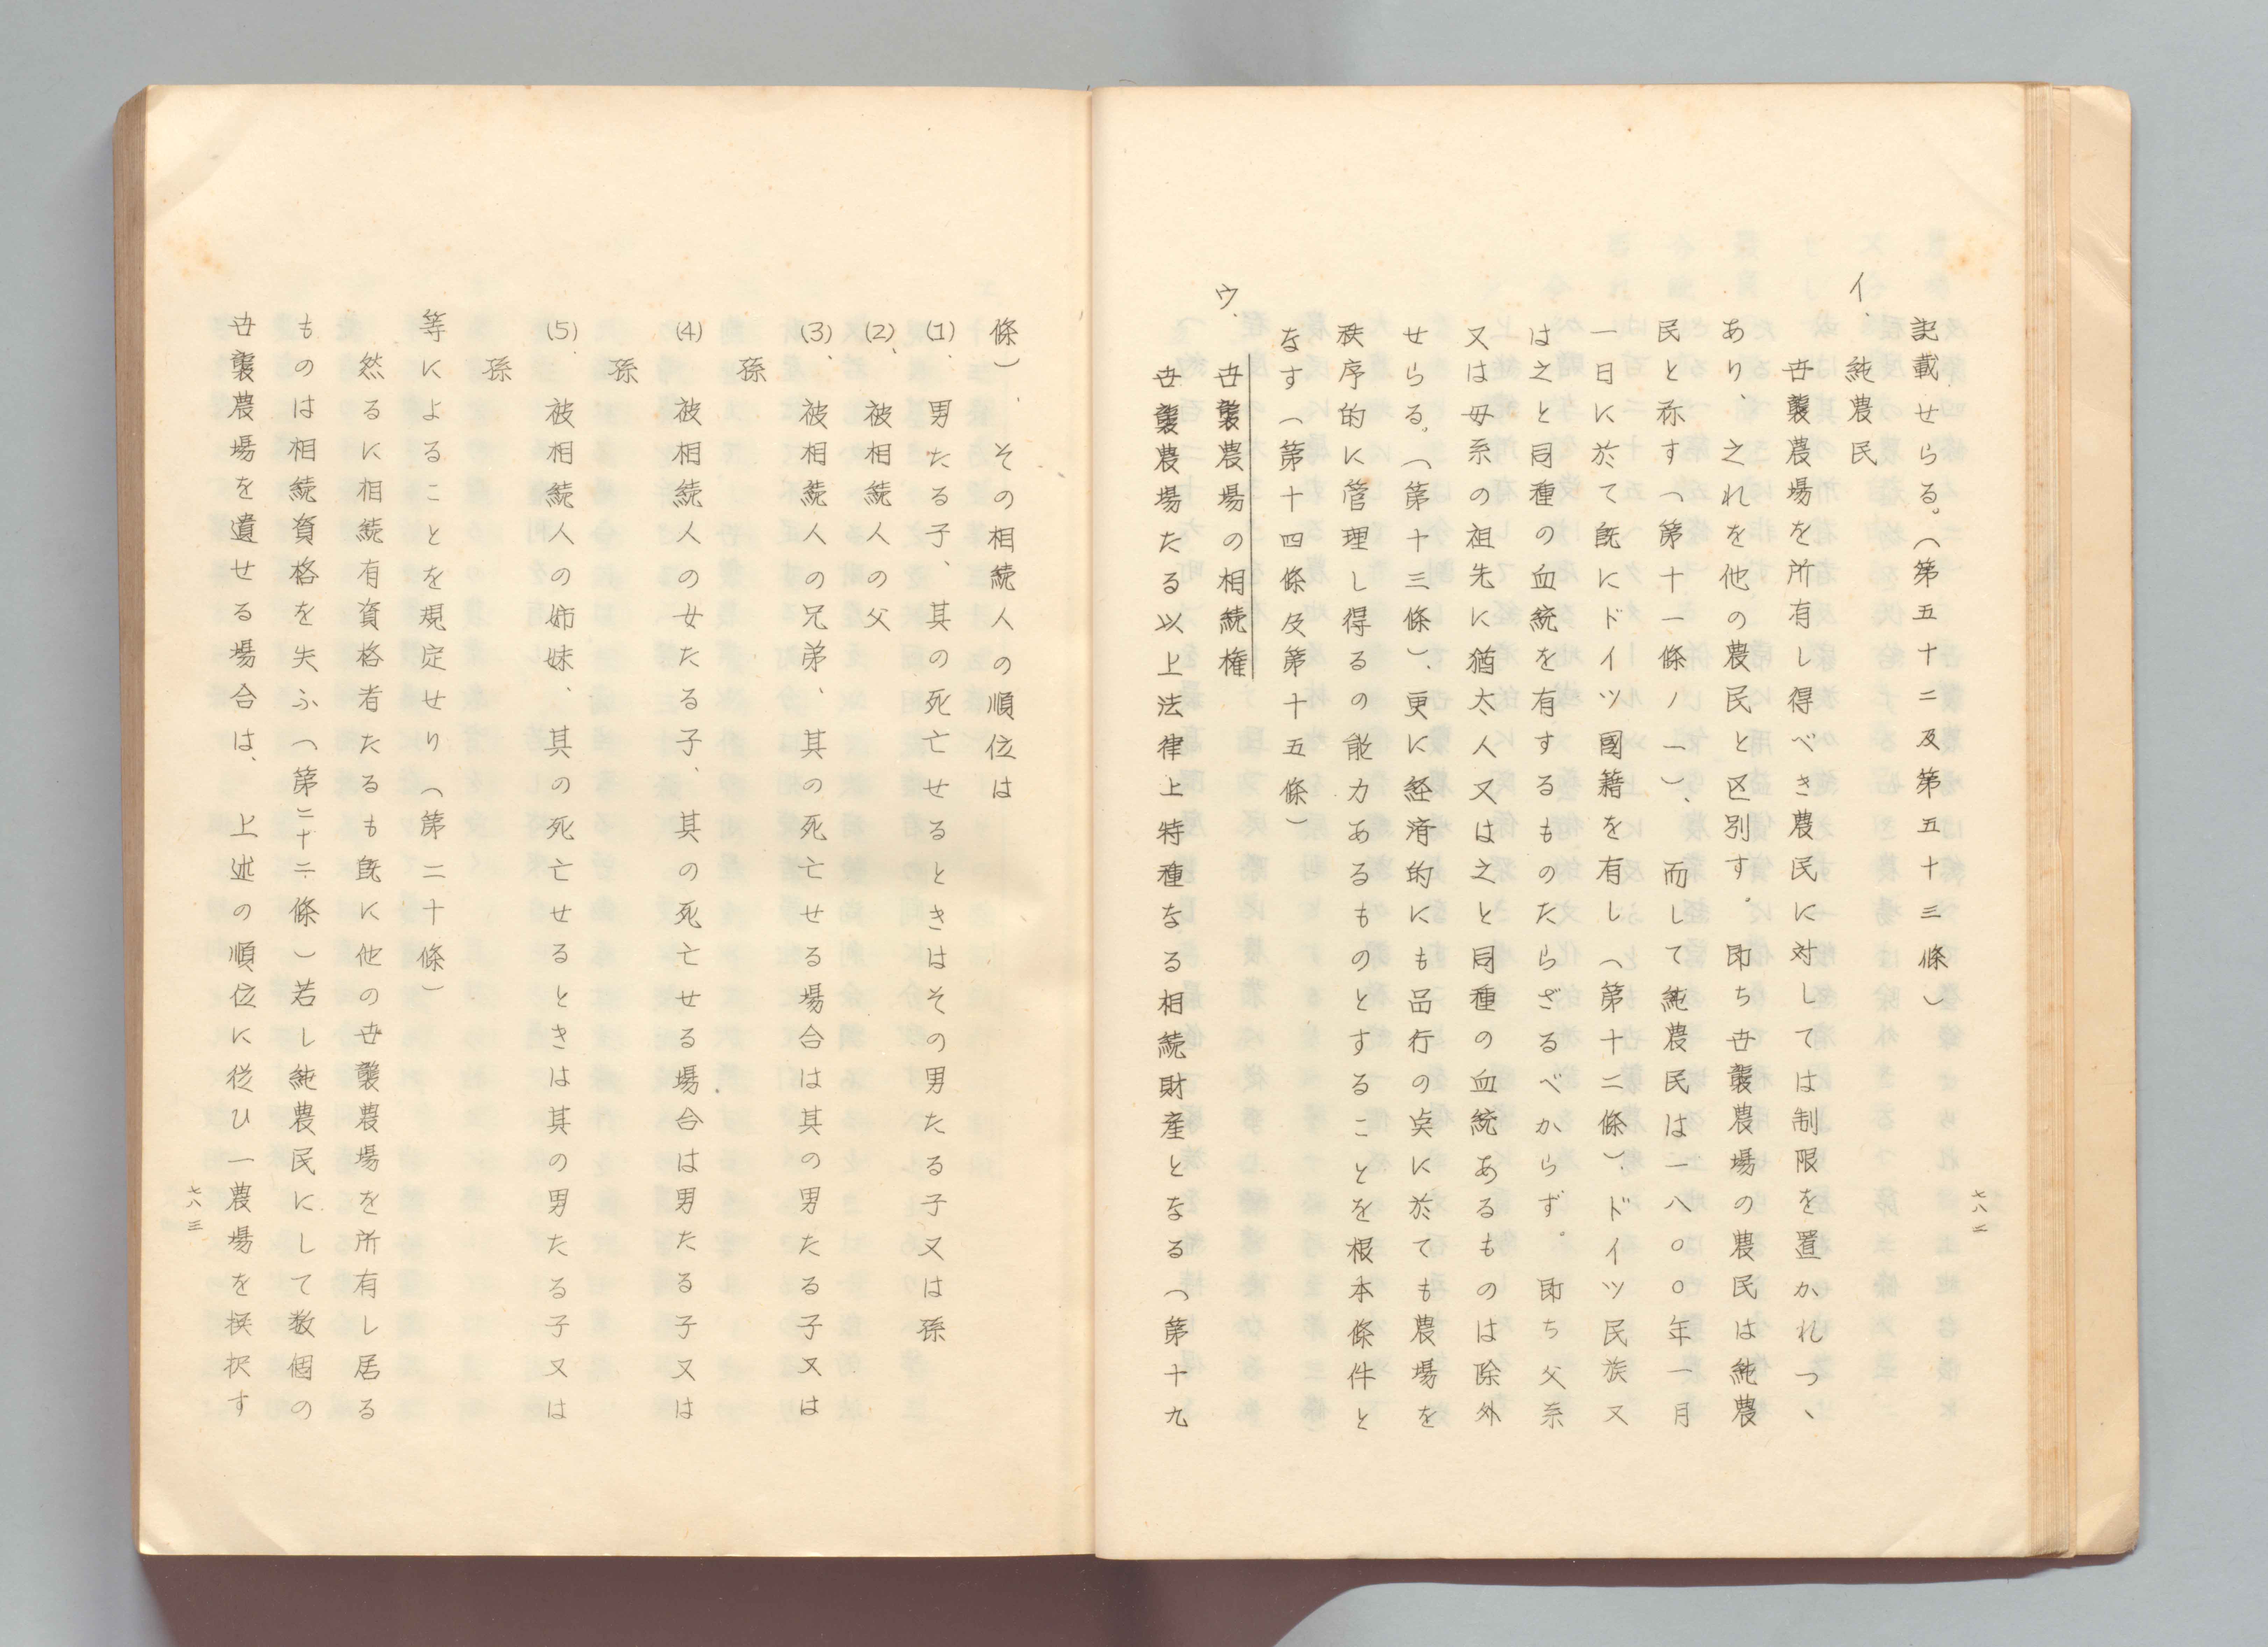 記載せらる。(第五十二及第五十三條)
イ、純農民
世襲農場を所有し得べき農民に対しては制限を置かれつゝ
あり、之れを他の農民と区別す。即ち世襲農場の農民は純農
民と称す(第十一條ノ一)、而して純農民は一八〇〇年一月
一日に於て既にドイツ國籍を有し(第十二條)、ドイツ民族又
は之と同種の血統を有するものたらざるべからず。即ち父系
又は母系の祖先に猶太人又は之と同種の血統あるものは除外
せらる。(第十三條)、更に経済的にも品行の点に於ても農場を
秩序的に管理し得るの能力あるものとすることを根本條件と
なす(第十四條及第十五條)
ウ、世襲農場の相続権
世襲農場たる以上法律上特種なる相続財産となる(第十九
七八二
條)、その相続人の順位は
(1)、男たる子、其の死亡せるときはその男たる子又は孫
(2)、被相続人の父
(3)、被相続人の兄弟、其の死亡せる場合は其の男たる子又は
孫
(4)、被相続人の女たる子、其の死亡せる場合は男たる子又は
孫
(5)、被相続人の姉妹、其の死亡せるときは其の男たる子又は
孫
等によることを規定せり(第二十條)
然るに相続有資格者たるも既に他の世襲農場を所有し居る
ものは相続資格を失ふ(第二十二條)若し純農民にして数個の
世襲農場を遺せる場合は、上述の順位に従ひ一農場を撰択す
七八三